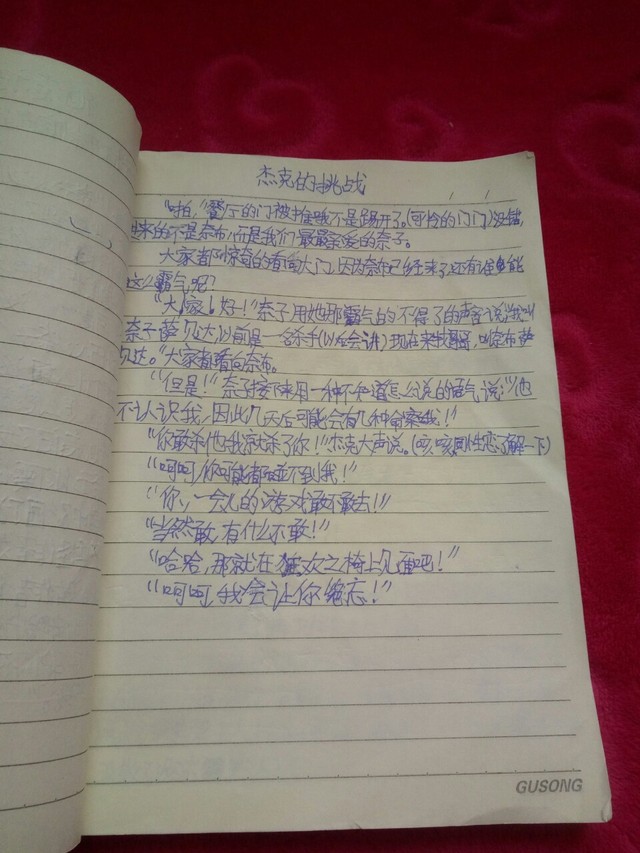 杰克的挑战
"啪,"餐厅的门被推哦不是踢开了。(可怜的门门)没错,
进来的不是奈布,而是我们最最亲爱的奈子。
大家都惊奇的看向大门,因为奈布已经来了,还有谁能
这么霸气呢?
"大家好!"奈子用她那霸气的不得了的声音说
奈子萨贝达,以前是一名杀手(以后会讲)现在来找哥哥,叫奈布萨
贝达。"大家都看向奈布。
"但是!"奈子接下来用一种不知道怎么说的语气说:"他
不认识我,因此几天后可能会有几种命案哦!"
"你敢杀他我就杀了你!"杰克大声说。(咳,咳同性恋了解一下)
"呵呵,你可能都碰不到我!"
"你,一会儿的游戏敢不敢去!"
"当然敢,有什么不敢!"
"哈哈,那就在狂欢之椅上见面吧!"
"呵呵,我会让你绝
GUSONG